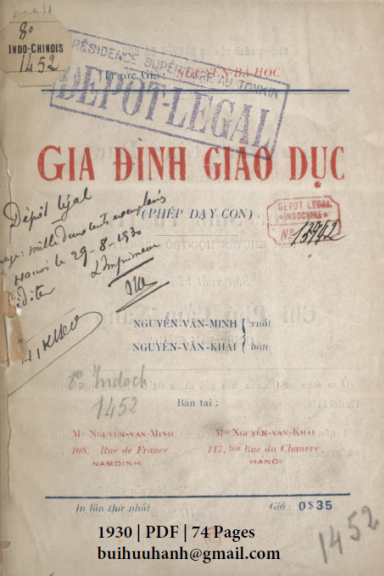 8°
INDO-CHINOIS
1452
RÉSIDENCE SUPÉRIEURE AU TONKIN
DEPOT-LEGAL
NGUYỄN-BÁ-HỌC
GIA ĐÌNH GIÁO DỤC
(PHÉP DẠY CON)
Dépôt légal
mille deux cents exemplaires
Hanoi le 29-8-1930
L'Imprimeur
DEPOT LEGAL
INDOCHINE
N° 13942
NGUYỄN-VĂN-MINH
NGUYỄN-VĂN-KHẢI
xuất
bản
8° Indoch
1452
Bán tại :
Mr NGUYỄN-VĂN-MINH
108, Rue de France
NAMDINH
Mr NGUYỄN-VĂN-KHẢI
117, bis Rue du Chanvre
HANOI
In lần thứ nhất
Giá : 0$35
1452
1930 | PDF | 74 Pages
buihuuhanh@gmail.com